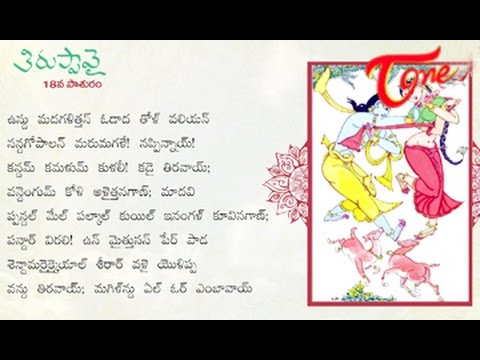 తిరుప్పావై
18వ పాశురం
Tone
ఉన్దు మదగళిత్తన్ ఓడాద తోళ్ వలియన్
నన్దగోపాలన్ మరుమగళే! నప్పిన్నాయ్!
కన్దమ్ కమళుమ్ కుళలీ! కడై తిరవాయ్;
వన్దెంగుమ్ కోళి అళైత్తనగాణ్; మాదవి
ప్పన్దల్ మేల్ పల్కాల్ కుయిల్ ఇనంగళ్ కూవినగాణ్;
పన్దార్ విరలి! ఉన్ మైత్తునన్ పేర్ పాడ
శెన్దామరైక్కైయాల్ శీరార్ వళై యొళిప్ప
వన్దు తిరవాయ్; మగిళ్న్దు ఏల్ ఓర్ ఎంబావాయ్